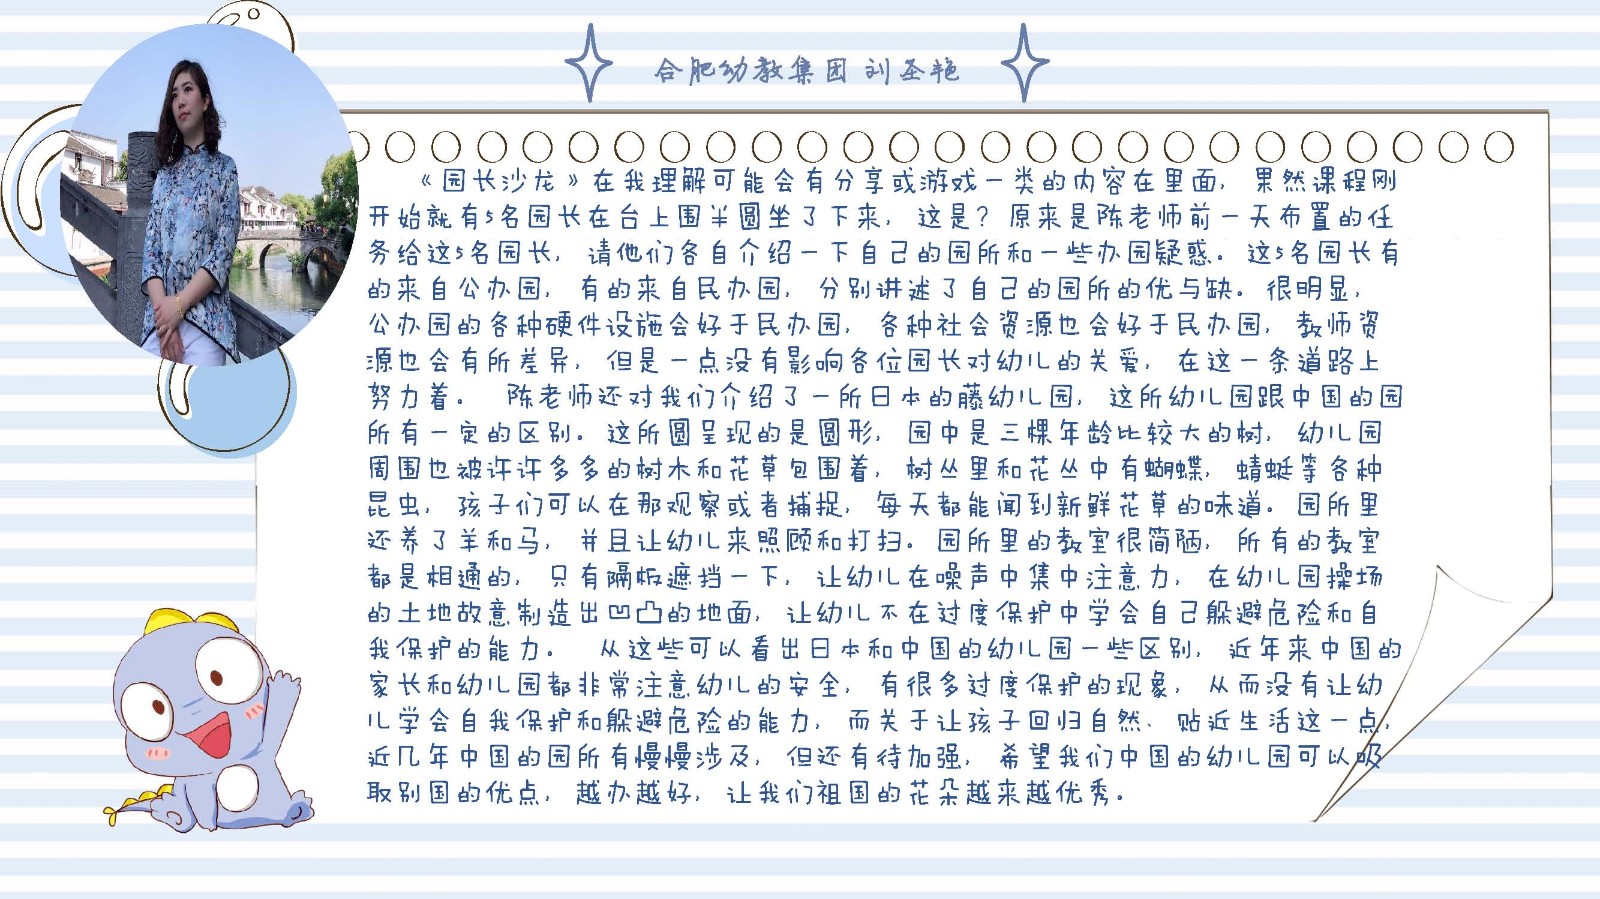 合肥幼教集团 刘圣艳
《园长沙龙》在我理解可能会有分享或游戏一类的内容在里面，果然课程刚
开始就有5名园长在台上围半圆坐了下来，这是？原来是陈老师前一天布置的任
务给这5名园长，请他们各自介绍一下自己的园所和一些办园疑惑。这5名园长有
的来自公办园，有的来自民办园，分别讲述了自己的园所的优与缺。很明显，
公办园的各种硬件设施会好于民办园，各种社会资源也会好于民办园，教师资
源也会有所差异，但是一点没有影响各位园长对幼儿的关爱，在这一条道路上
努力着。 陈老师还对我们介绍了一所日本的藤幼儿园，这所幼儿园跟中国的园
所有一定的区别。这所圆呈现的是圆形，园中是三棵年龄比较大的树，幼儿园
周围也被许许多多的树木和花草包围着，树丛里和花丛中有蝴蝶，蜻蜓等各种
昆虫，孩子们可以在那观察或者捕捉，每天都能闻到新鲜花草的味道。园所里
还养了羊和马，并且让幼儿来照顾和打扫。园所里的教室很简陋，所有的教室
都是相通的，只有隔板遮挡一下，让幼儿在噪声中集中注意力，在幼儿园操场
的土地故意制造出凹凸的地面，让幼儿不在过度保护中学会自己躲避危险和自
我保护的能力。 从这些可以看出日本和中国的幼儿园一些区别，近年来中国的
家长和幼儿园都非常注意幼儿的安全，有很多过度保护的现象，从而没有让幼
儿学会自我保护和躲避危险的能力，而关于让孩子回归自然、贴近生活这一点，
近几年中国的园所有慢慢涉及，但还有待加强，希望我们中国的幼儿园可以吸
取别国的优点，越办越好，让我们祖国的花朵越来越优秀。